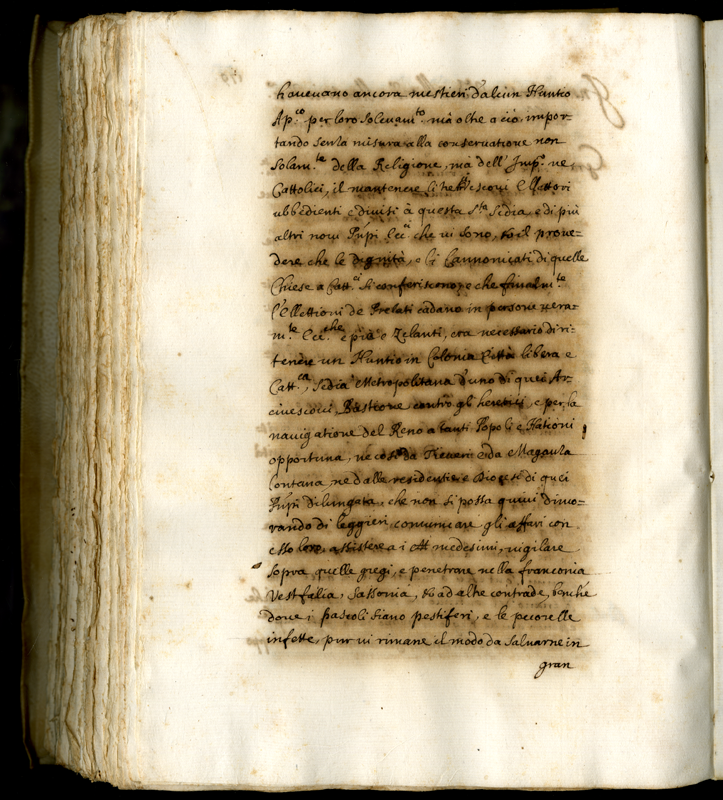 haveuano ancora mestieri d'alcun Nuntio
Ap.co per loro Solevam.to mà oltre a ciò impor-
tando senza misura alla conservatione non
Solam.te della Religione, mà dell' Imp.o ne,
Cattolici, il mantenere li trè Vescovi Elettori
ubbedienti e divoti à questa S.ta Sedia, e di più
altri novi Prīpi Ecc.ci che vi sono, il prove-
dere che le dignità, e li Cannonicati di quelle
Chiese a Catt.ci Si conferiscono, e che finalm.te
l'Ellettioni de Prelati cadano in persone vera-
m.te Ecc.che e pie e Zelanti, era necessario di ri-
tenere un Nuntio in Colonia Città libera e
Catt.ca, Sedia Metropolitana d'uno di quei Ar-
civescovi, Bastione contro gli heretici, e per la
navigatione del Reno a tanti Popoli e Nationi
opportuna, ne così da Treveri e da Maganza
lontana, ne dalle residentie e Diocesi di quei
Prīpi dilungata, che non si possa quivi dimo-
rando di leggieri comunicare gli affari con
esso loro, assistere a i medesimi, vigilare
sopra quelle gregi, e penetrare nella franconia
Vestfalia, Sassonia, ad altre contrade, benche
dove i pascoli siano pestiferi, e le pecorelle
infette, pur vi rimane il modo da salvarne in
gran